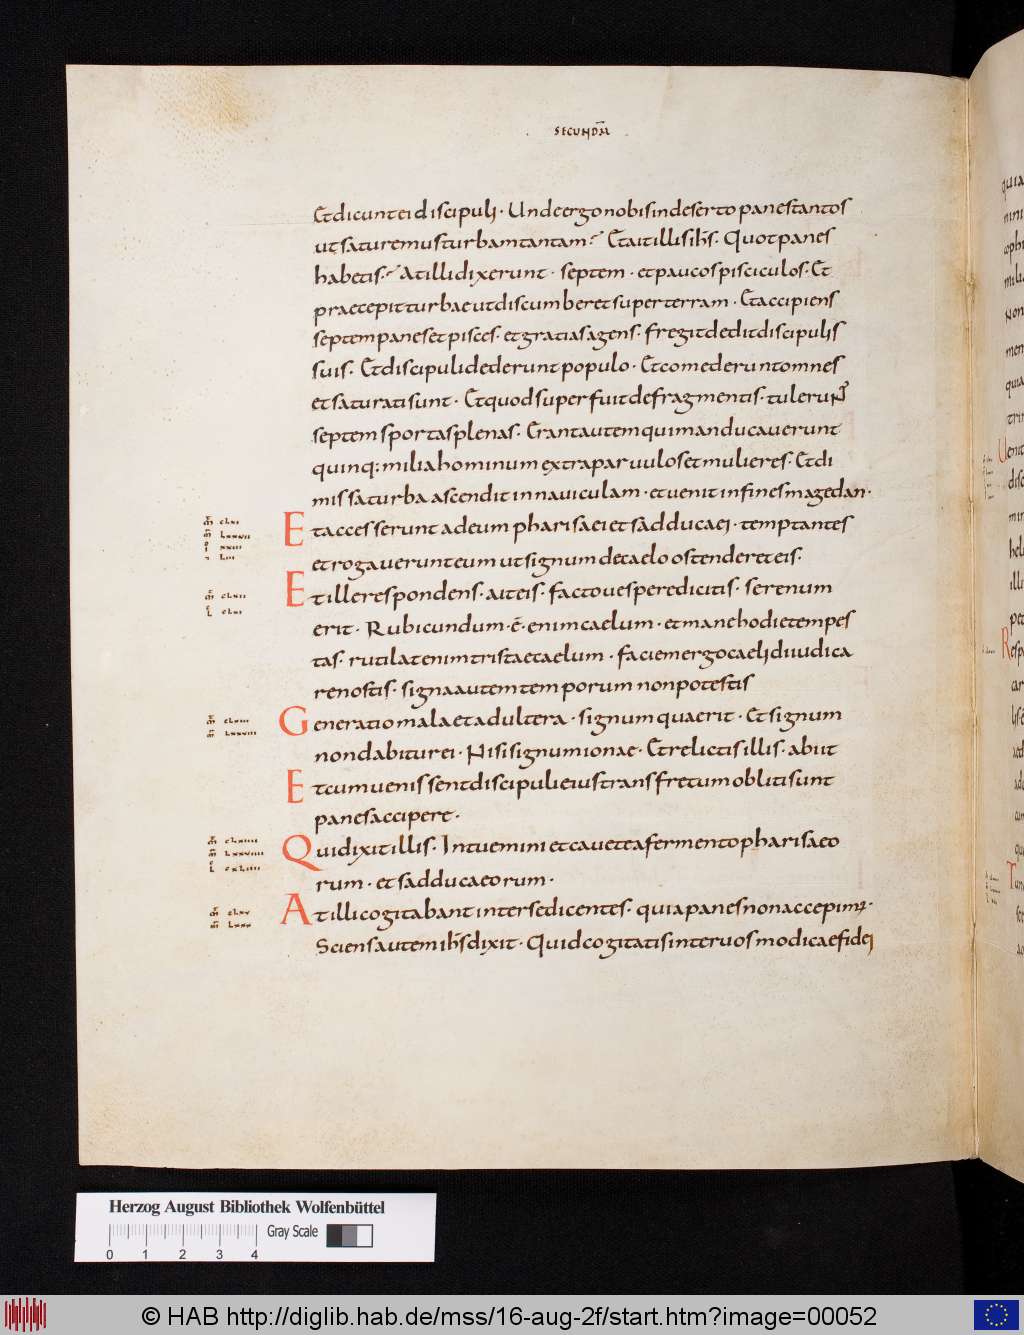 SECUNDM̄
Et dicunt ei discipuli · Unde ergo nobis in deserto panes tantos
ut saturemus turbam tantam? Et ait illis ih̄s. Quot panes
habetis? At illi dixerunt · septem · et paucos pisciculos. Et
praecepit turbae ut discumberet super terram · Et accipiens
septem panes et pisces. et gratias agens. fregit dedit discipulis
suis. Et discipuli dederunt populo · Et comederunt omnes
et saturati sunt · Et quod superfuit de fragmentis. tulerunt
septem sportas plenas. Erant autem qui manducauerunt
quinq; milia hominum extra paruulos et mulieres. Et di
missa turba ascendit in nauiculam · et uenit in fines magedan ·
Et accesserunt ad eum pharisaei et sadducaei · temptantes
et rogauerunt eum ut signum de caelo ostenderet eis.
Et ille respondens. ait eis. facto uespere dicitis. serenum
erit · Rubicundum · ē · enim caelum · et mane hodie tempes
tas. rutilat enim triste caelum · faciem ergo caeli diiudica
re nostis. signa autem temporum non potestis
Generatio mala et adultera · signum quaerit · Et signum
non dabitur ei · Nisi signum ionae · Et relictis illis. abiit
Et cum uenissent discipuli eius trans fretum obliti sunt
panes accipere ·
Qui dixit illis. Intuemini et cauete a fermento pharisaeo
rum · et sadducaeorum ·
At illi cogitabant inter se dicentes. quia panes non accepim; ·
Sciens autem ih̄s dixit · Quid cogitatis inter uos modicae fidei
Herzog August Bibliothek Wolfenbüttel
Gray Scale
0 1 2 3 4
© HAB http://diglib.hab.de/mss/16-aug-2f/start.htm?image=00052